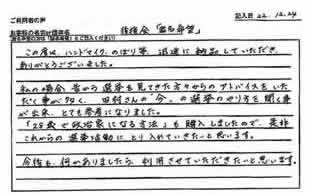 ご利用者の声
記入日 22.12.24
お客様の名前か団体名 後援会「匿名希望」
この度は、ハンドマイク、のぼり等、迅速に納品していただき、
ありがとうございました。
私の場合、昔から選挙を見てきた方々からのアドバイスをいた
だく事が多く、田村さんの"今"の選挙のやり方を聞く事
が出来、とても参考になりました。
「28歳で政治家になる方法」も購入しましたので、是非
これからの選挙活動にとり入れていきたいと思います。
今後も、何かありましたら、利用させていただきたいと思います。